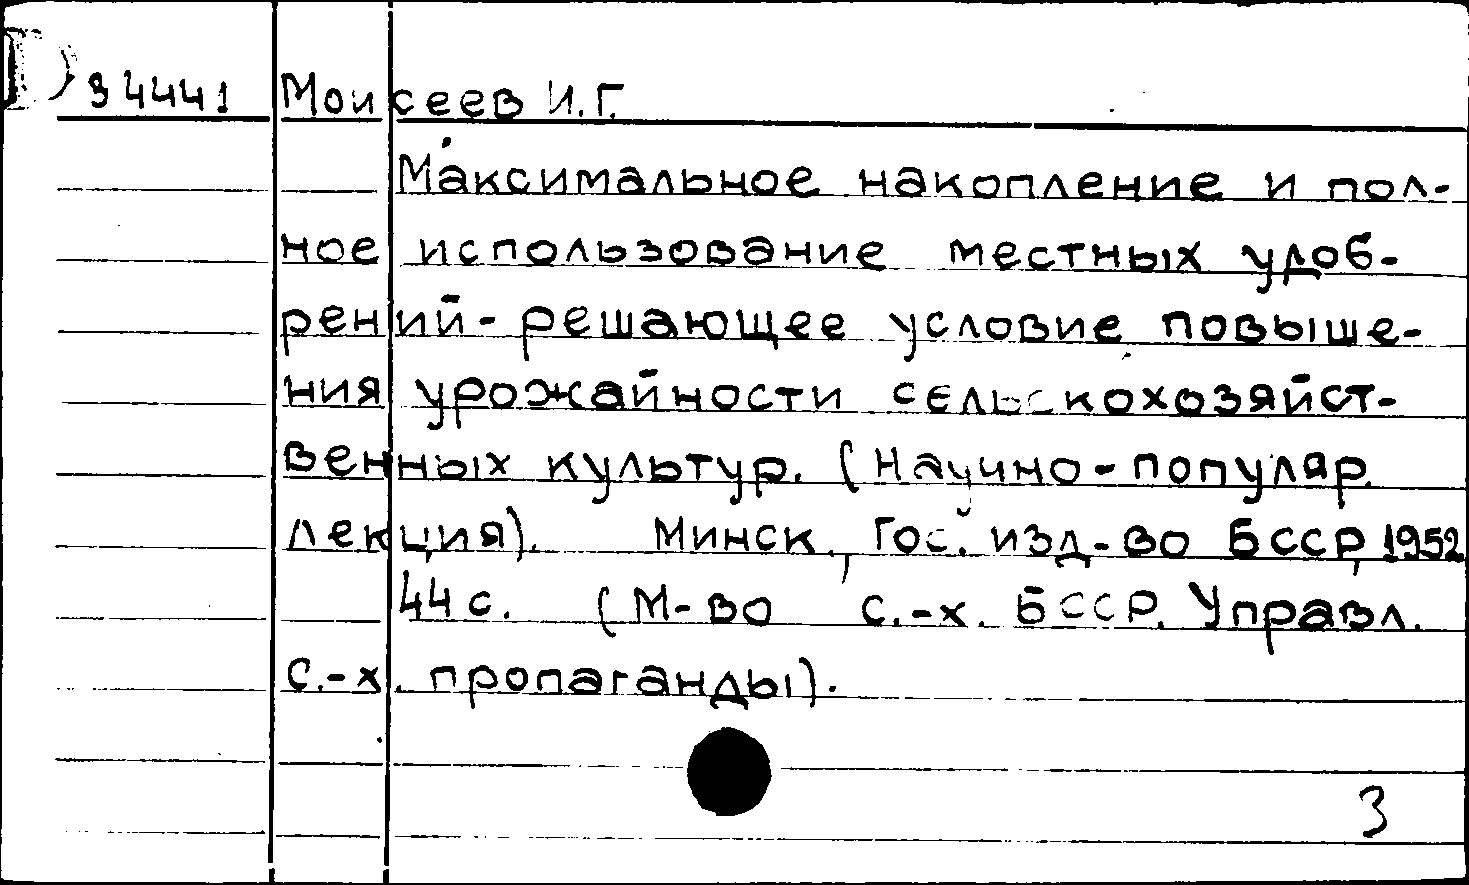 34441 Моисеев И.Г.
Максимальное накопление и пол-
ное использование местных удоб-
рений-решающее условие повыше-
ния урожайности сельскохозяйст-
венных культур. (Научно-популяр.
лекция). Минск, Гос. изд-во БССР, 1952
44 с. (М-во с.-х. БССР. Управл.
с.-х. пропаганды).
3